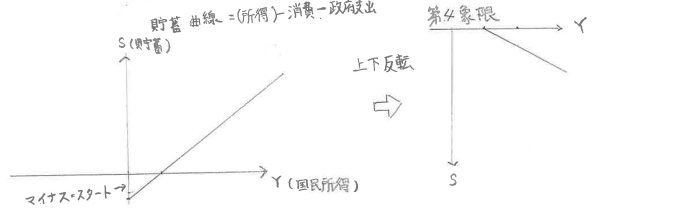 貯蓄曲線=(所得)-消費-政府支出
S(貯蓄)
マイナス=スタート→
Y(国民所得)
上下反転
第4象限
Y
S